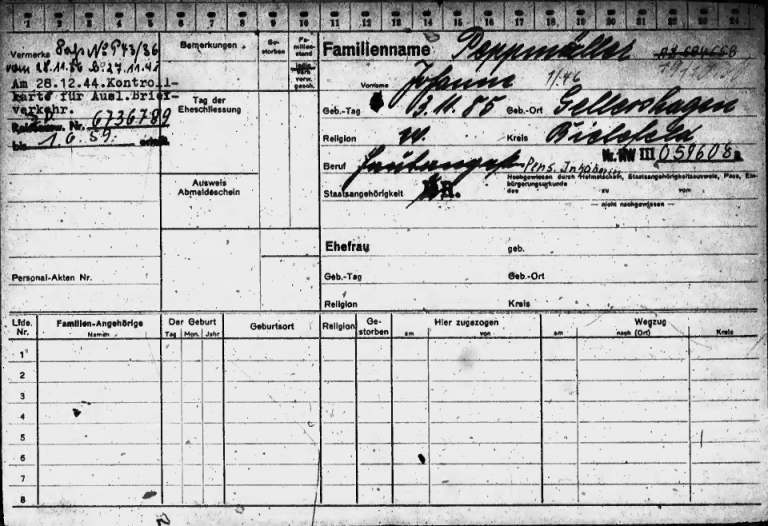 1 2 3 4 5 6 7 8 9 10 11 12 13 14 15 16 17 18 19 20 21 22 23 24
Vermerke Pass No 943/36
vom 28.11.36
Am 28.12.44.Kontroll-
karte für Ausl.Brief-
verkehr.
Nr. 6736789
bis 1.6.59.
Personal-Akten Nr.
Bemerkungen
Ge-
storben
Fa-
milien-
stand
ledig
verh.
verw.
gesch.
Tag der
Eheschliessung
Ausweis
Abmeldeschein
Familienname Poppmüller
Vorname Johann 1/46
Geb.-Tag 3.11.85 Geb.-Ort Gellershagen
Religion Kreis Bielefeld
Nr. NW III 059608a
Beruf Pens. Inhaberin
Nachgewiesen durch Heimatschein, Staatsangehörigkeitsausweis, Pass, Ein-
bürgerungsurkunde
des zu vom
Staatsangehörigkeit DR.
— nicht nachgewiesen —
Ehefrau geb.
Geb.-Tag Geb.-Ort
Religion Kreis
Lfde. Nr. Familien-Angehörige Namen Der Geburt Tag Mon. Jahr Geburtsort Religion Ge-storben Hier zugezogen am von Wegzug am nach (Ort) Kreis
1
2
3
4
5
6
7
8